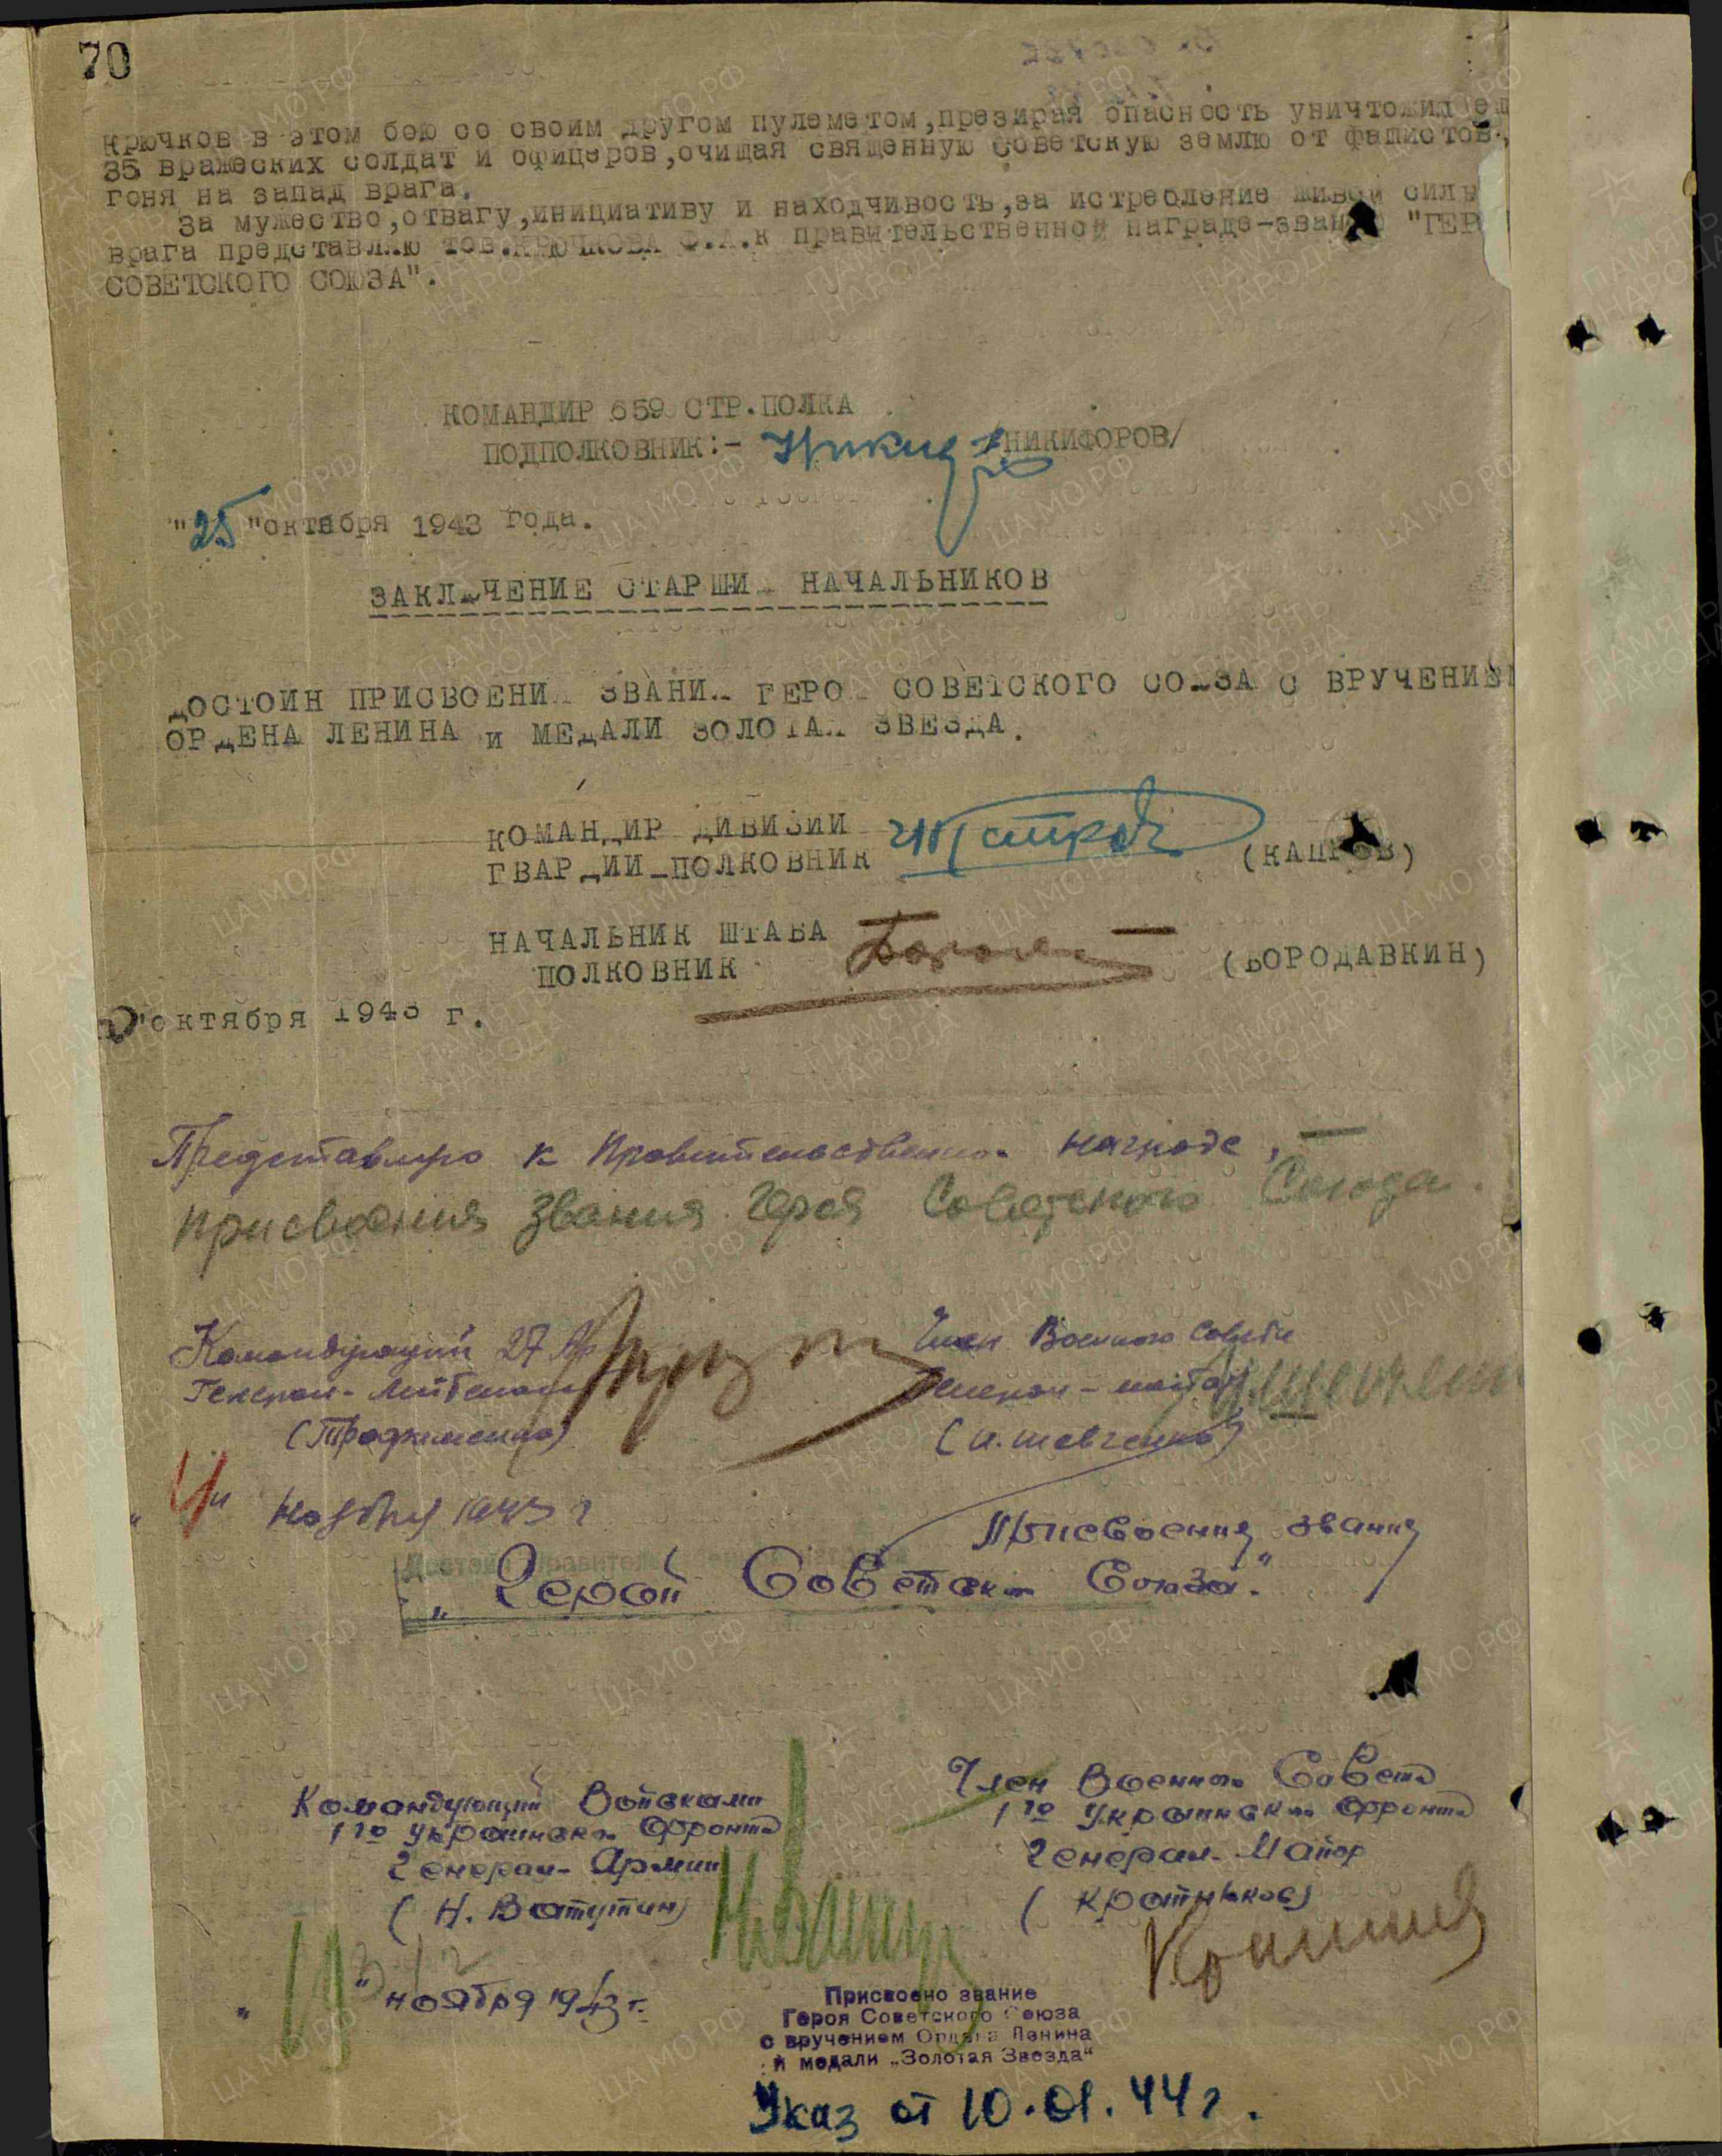 70
Крючков в этом бою со своим другом пулеметом,презирая опасность уничтожил
35 вражеских солдат и офицеров,очищая священную Советскую землю от фашистов,
гоня на запад врага.
За мужество,отвагу,инициативу и находчивость,за истребление живой силы
врага представляю тов.КРЮЧКОВА к правительственной награде-званию "ГЕР
СОВЕТСКОГО СОЮЗА".
КОМАНДИР 659 СТР.ПОЛКА
ПОДПОЛКОВНИК:- /НИКИФОРОВ/
"25"октября 1943 года.
ЗАКЛЮЧЕНИЕ СТАРШИХ НАЧАЛЬНИКОВ
ДОСТОИН ПРИСВОЕНИЯ ЗВАНИЯ ГЕРОЯ СОВЕТСКОГО СОЮЗА С ВРУЧЕНИЕМ
ОРДЕНА ЛЕНИНА и МЕДАЛИ ЗОЛОТАЯ ЗВЕЗДА.
КОМАНДИР ДИВИЗИИ
ГВАРДИИ ПОЛКОВНИК
НАЧАЛЬНИК ШТАБА
ПОЛКОВНИК (БОРОДАВКИН)
"октября 1943 г.
Представляю к Правительственной награде,
присвоения звания Героя Советского Союза.
Командующий 27 Ар
Генерал-лейтенант
(Трофименко)
Член Военного Совета
Генерал-майор
(И. Шевченко)
"4" Ноября 1943 г
Присвоения звания
"Герой Советского Союза."
Командующий Войсками
1го Украинского фронта
Генерал-Армии
(Н. Ватутин)
Член Военного Совета
1го Украинского фронта
Генерал-Майор
(Крайнюков)
" " ноября 1943 г.
Присвоено звание
Героя Советского Союза
с вручением Ордена Ленина
и медали „Золотая Звезда“
Указ от 10.01.44 г.